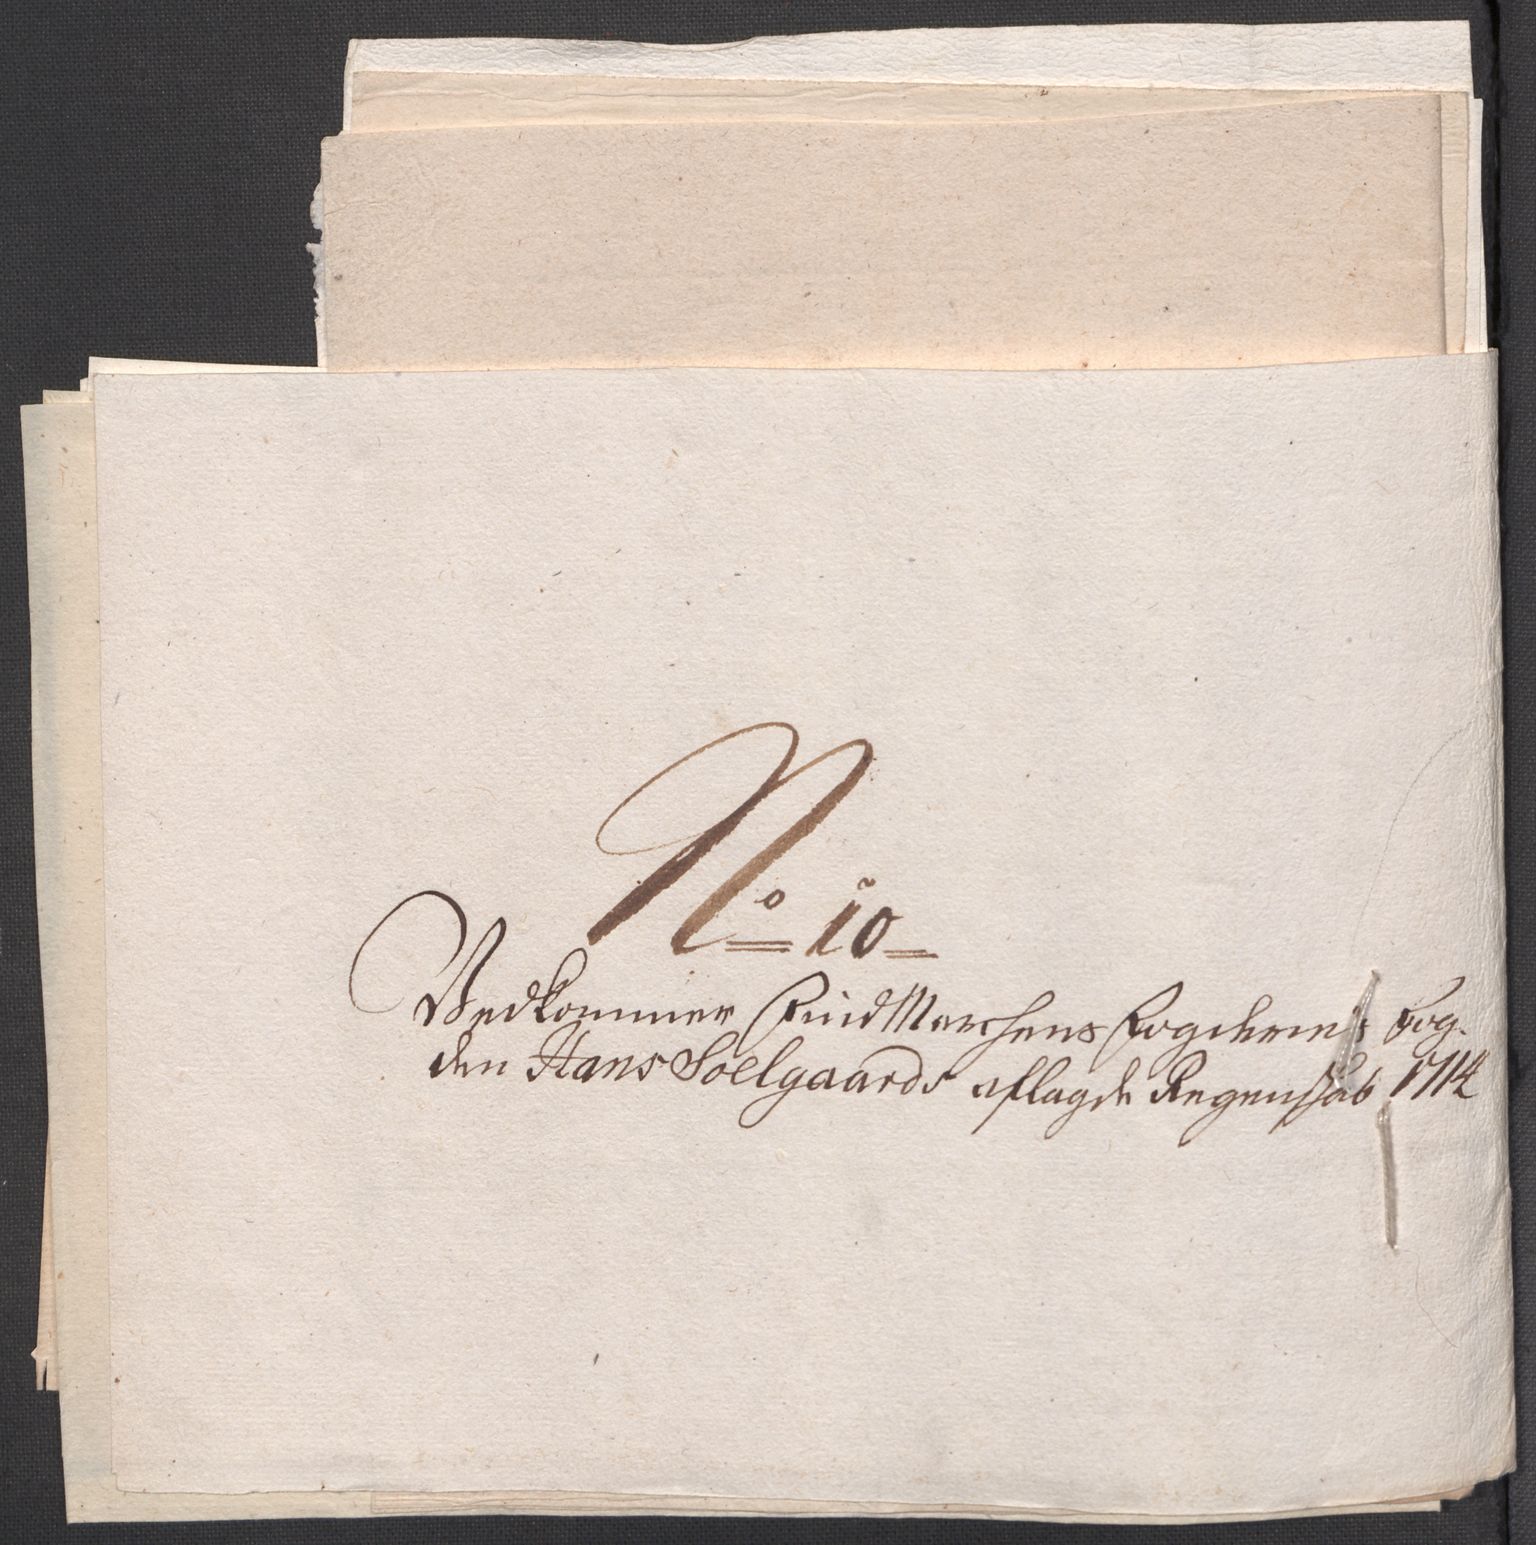 No 10
Vedkommer FindMarchens Fogderies Fog-
den Hans Soelgaards aflagde Regenskab 1714